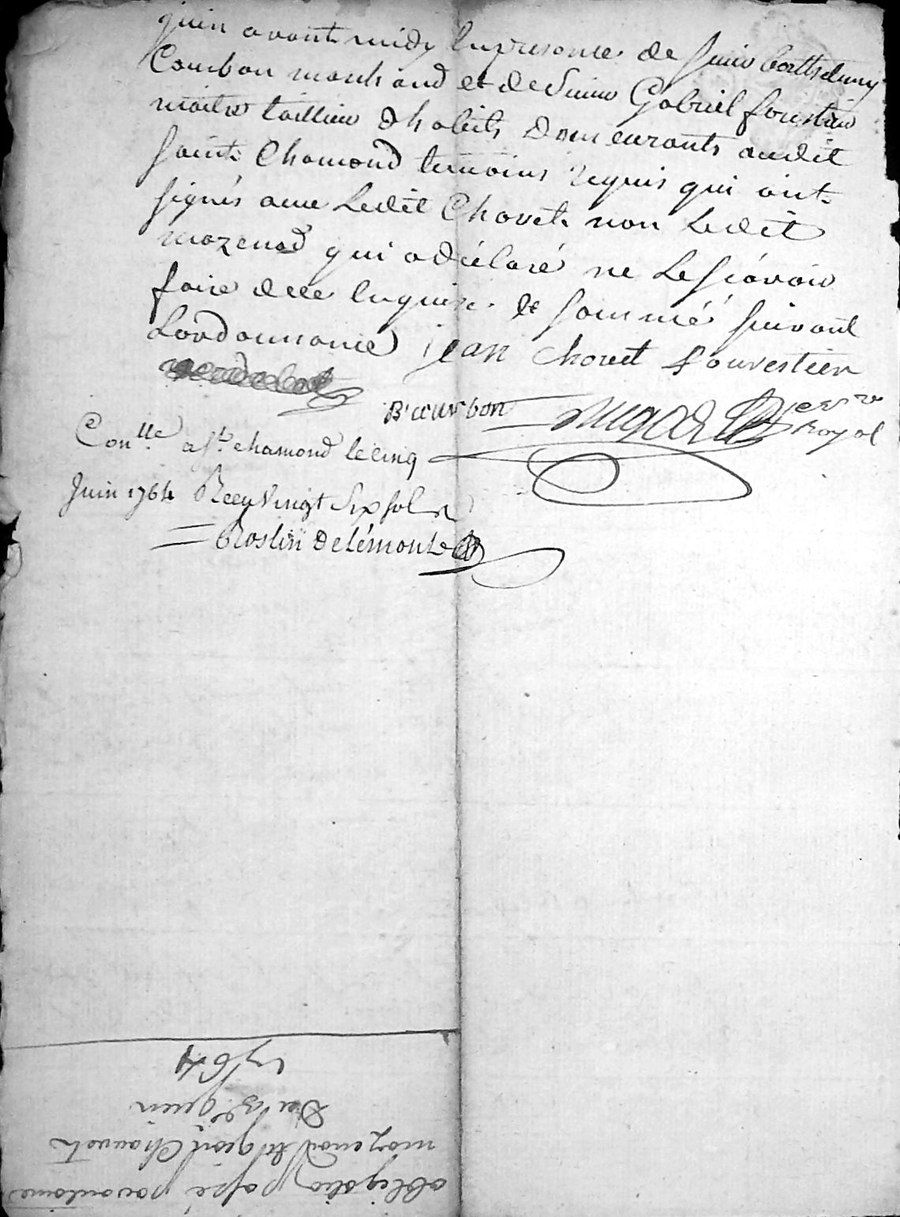 juin avant midy En presence de sieur barthelemy
Courbon marchand et de sieur Gabriel forestier
maitre taillieur d'habits demeurants audit
saint Chamond temoins requis qui ont
signés avec Ledit Chovet non Ledit
mazenod qui a déclaré ne Le sçavoir
faire de ce Enquis & sommé suivant
Lordonnance jean Chovet f ourestier
B. courbon
royal
Con.lle a s.t chamond le cinq
Juin 1764 Recu vingt six sols
Roslin Delémont
obligation passé par antoine
mazenod Et jean Chauvet
Du juin
1764